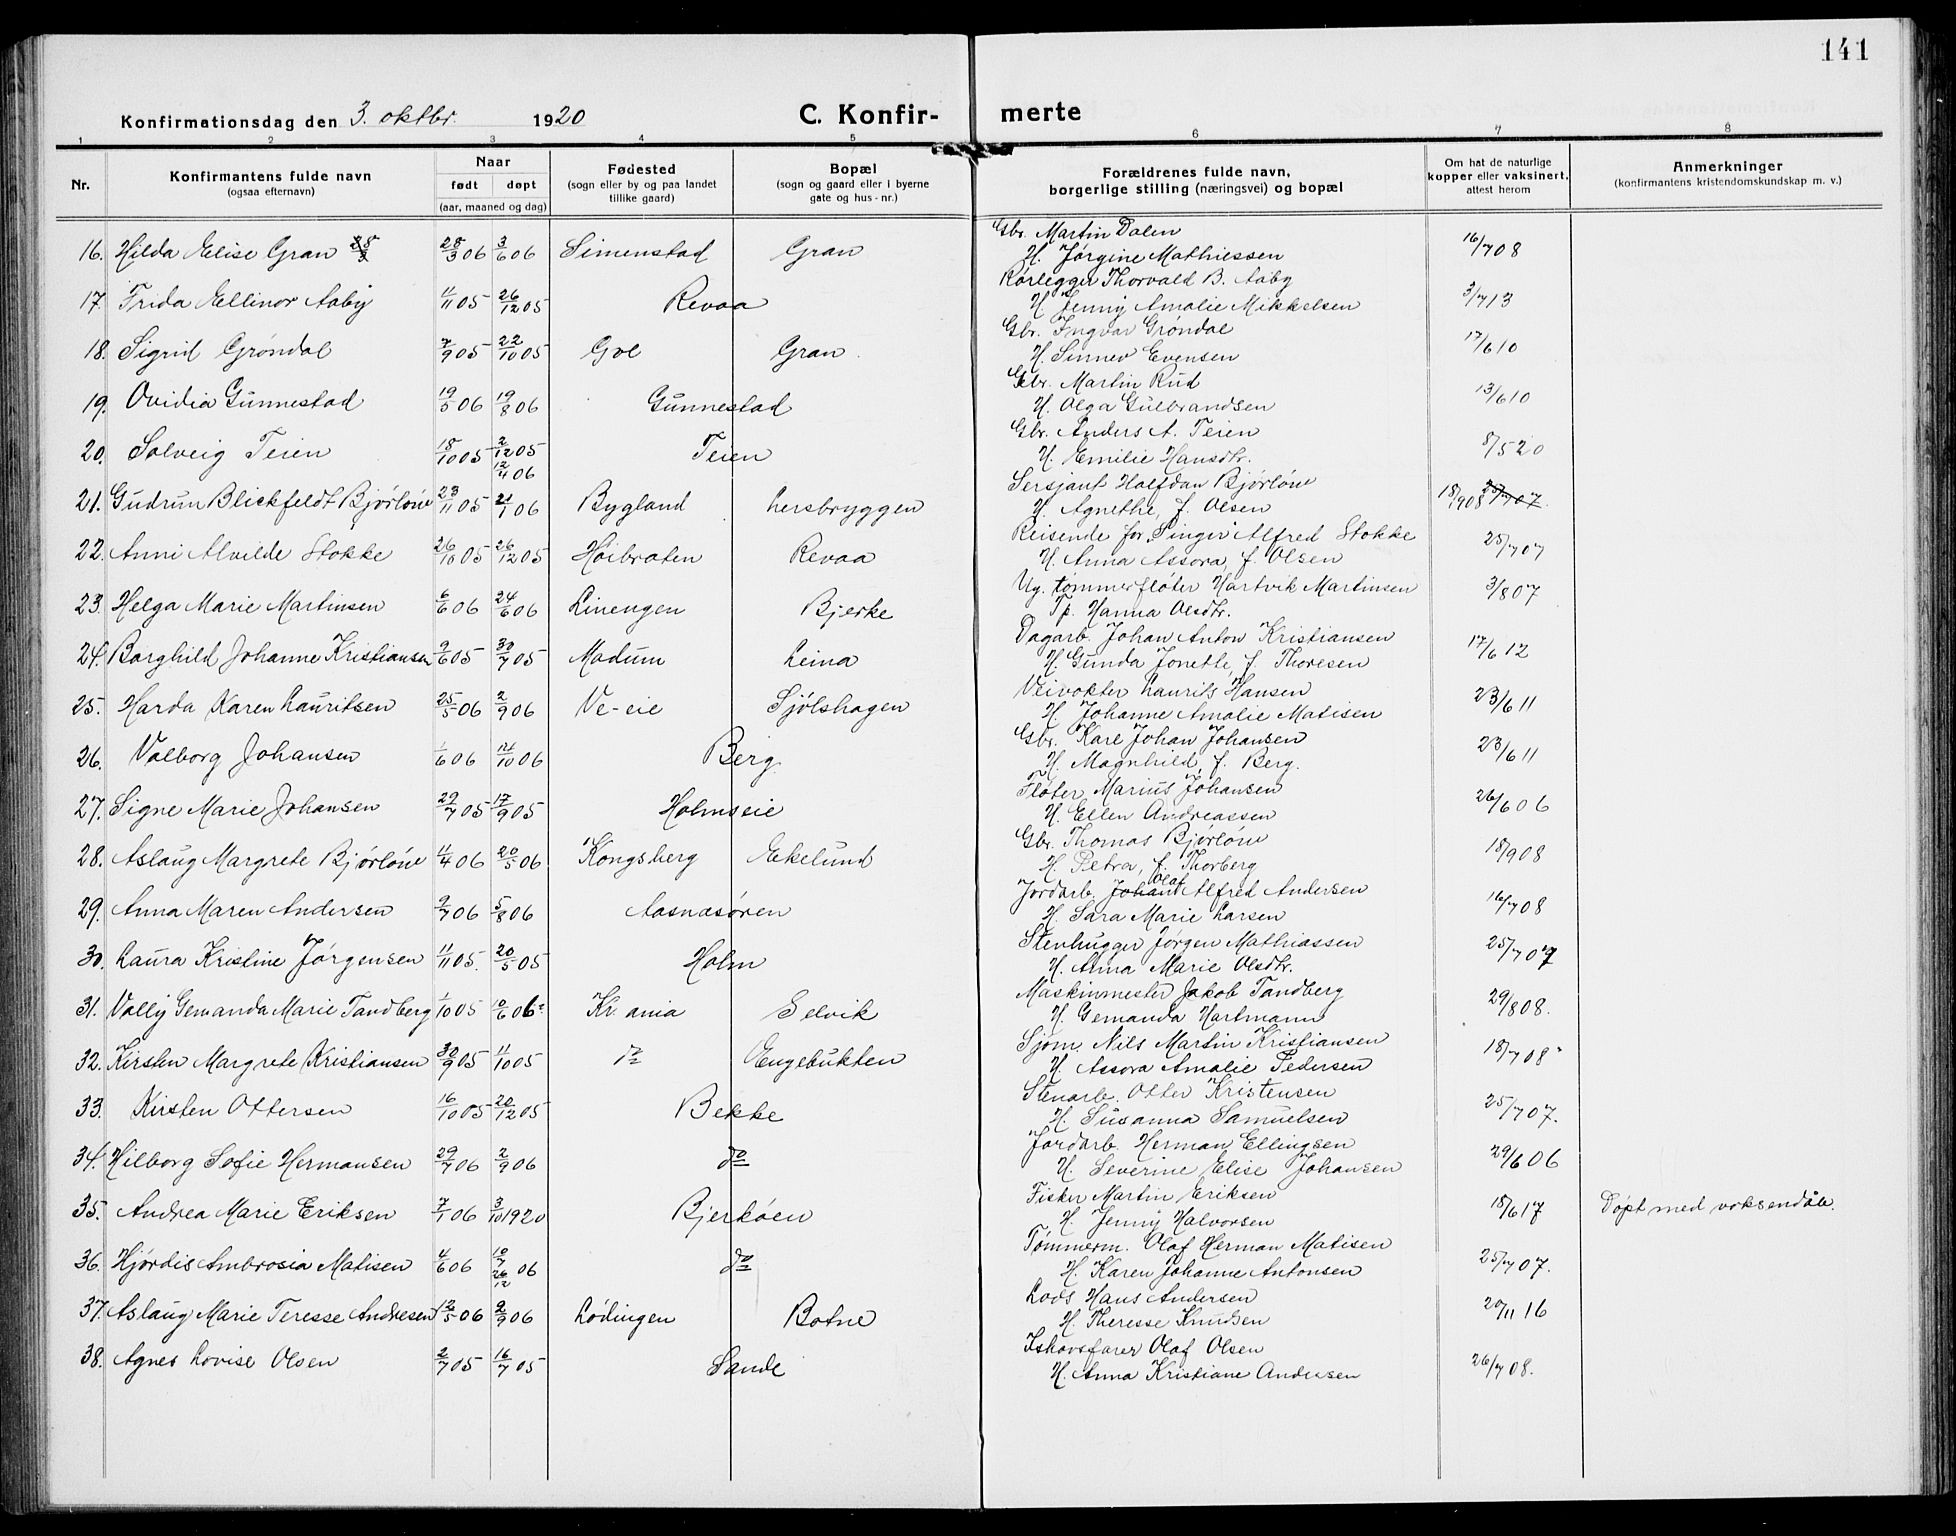 141
Konfirmationsdag den 3. oktbr. 1920 C. Konfir- merte
1 2 3 4 5 6 7 8
Nr. Konfirmantens fulde navn (ogsaa efternavn) Naar født døpt (aar, maaned og dag) Fødested (sogn eller by og paa landet tillike gaard) Bopæl (sogn og gaard eller i byerne gate og hus-nr.) Forældrenes fulde navn, borgerlige stilling (næringsvei) og bopæl Om hat de naturlige kopper eller vaksinert, attest herom Anmerkninger (konfirmantens kristendomskundskap m. v.)
16. Hilda Elise Gran 28/3 06 3/6 06 Simenstad Gran Gbr. Martin Dalen 16/7 08
H. Jørgine Mathiessen
17. Frida Ellinor Aaby 11/11 05 26/12 05 Revaa Rørlegger Thorvald B. Aaby 3/7 13
H. Jenny Amalie Mikkelsen
18. Sigrid Grøndal 7/9 05 22/10 05 Gol Gran Gbr. Ingvar Grøndal 17/6 10
H. Sinnev Evensen
19. Ovidia Gunnestad 19/5 06 19/8 06 Gunnestad Gbr. Martin Rud 13/6 10
H. Olga Gulbrandsen
20. Solveig Teien 18/10 05 2/12 05 12/4 06 Teien Gbr. Anders A. Teien 8/5 20
H. Emilie Hansdtr.
21. Gudrun Blickfeldt Bjørløw 23/11 05 21/1 06 Bygland Lersbryggen Sersjant Halfdan Bjørløw 18/9 08 25/7 07.
H. Agnethe, f. Olsen
22. Anni Alvilde Stokke 26/10 05 26/12 05 Høibraten Revaa Reisende for Singer Alfred Stokke 25/7 07
H. Anna Assora, f. Olsen
23. Helga Marie Martinsen 6/6 06 24/6 06 Linengen Bjerke Ug. tømmerfløter Hartvik Martinsen 3/8 07
Tp. Hanna Olsdtr.
24. Borghild Johanne Kristiansen 9/6 05 30/7 05 Modum Leina Dagarb. Johan Anton Kristiansen 17/6 12
H. Gunda Jonette, f. Thoresen
25. Harda Karen Lauritsen 25/5 06 2/9 06 Ve-eie Sjølshagen Veivokter Laurits Hansen 23/6 11
H. Johanne Amalie Matisen
26. Valborg Johansen 1/6 06 14/10 06 Berg Gbr. Karl Johan Johansen 23/6 11
H. Magnhild, f. Berg.
27. Signe Marie Johansen 29/7 05 17/9 05 Holmseie Fløter Marius Johansen 26/6 06
H. Ellen Andreassen
28. Aslaug Margrete Bjørløw 11/4 06 20/5 06 Kongsberg Ekelund Gbr. Thomas Bjørløw 18/9 08
H. Petra, f. Thorberg
29. Anna Maren Andersen 9/7 06 5/8 06 Aasnæsøren Jordarb. Johan Olaf Alfred Andersen 16/7 08
H. Sara Marie Larsen
30. Laura Kristine Jørgensen 11/11 05. 20/5 05 Holm Stenhugger Jørgen Mathiassen 25/7 07
H. Anna Marie Olsdtr.
31. Vally Gemanda Marie Tandberg 1/10 05 10/6 06 Kr.ania Selvik Maskinmester Jakob Tandberg 29/8 08.
H. Gemanda Hartmann
32. Kirsten Margrete Kristiansen 30/9 05 11/10 05 do Engebukten Sjøm. Nils Martin Kristiansen 18/7 08
H. Assora Amalie Pedersen
33. Kirsten Ottersen 16/10 05 20/12 05 Bekke Stenarb. Otter Kristensen 25/7 07.
H. Susanna Samuelsen
34. Hilborg Sofie Hermansen 29/7 06 2/9 06 do Jordarb. Herman Ellingsen 29/6 06
H. Severine Elise Johansen
35. Andrea Marie Eriksen 7/1 06 3/10 1920 Bjerkøen Fisker Martin Eriksen 18/6 17 Døpt med voksendåb.
H. Jenny Halvorsen
36. Hjørdis Ambrosia Matisen 4/6 06 10/7 26/12 06 do Tømmerm. Olaf Herman Matisen 25/7 07.
H. Karen Johanne Antonsen
37. Aslaug Marie Teresse Andresen 12/5 06 2/9 06 Lødingen Botne Lods Hans Andersen 20/11 16
H. Therese Knudsen
38. Agnes Lovise Olsen 2/7 05 16/7 05 Sande Ishavsfarer Olaf Olsen 26/7 08.
H. Anna Kristiane Andersen